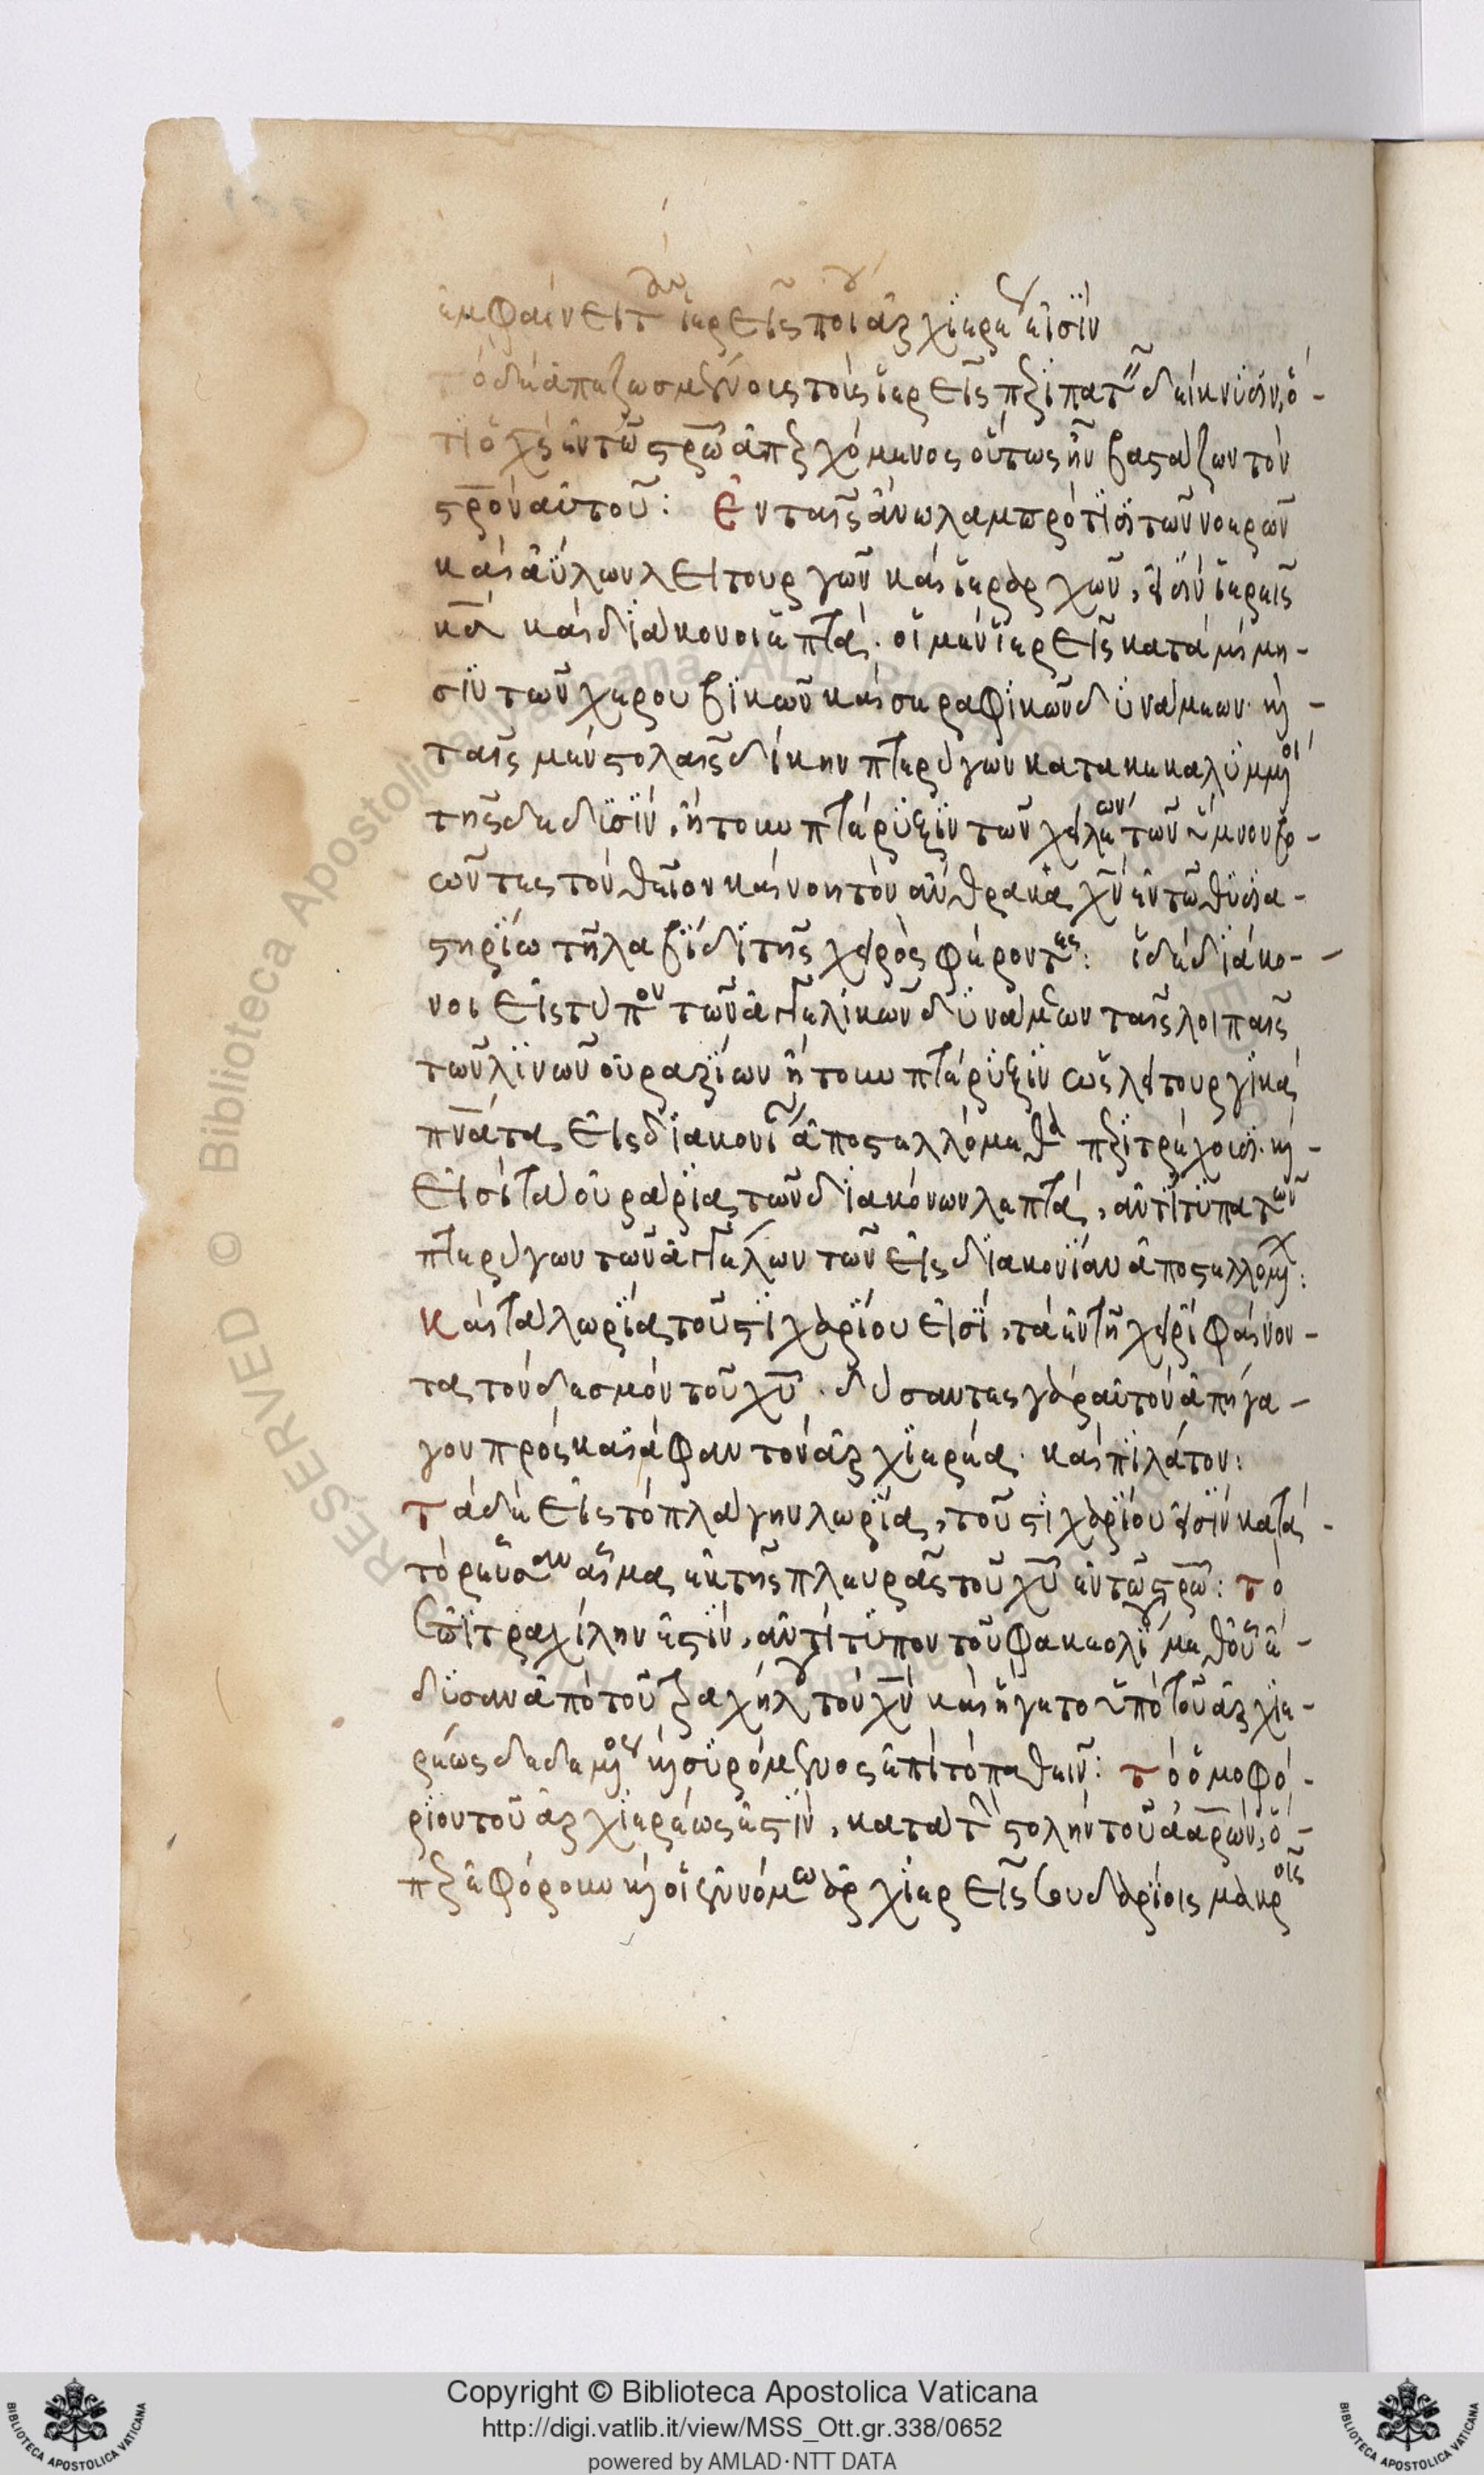 ἐμφαίνει τοὺς ἱερεῖς ποίου ἀρχιερέως εἰσίν
τὸ δὲ ἀπεζωσμένους τοὺς ἱερεῖς περιπατεῖν δείκνυσιν, ὅ-
τι ὁ χς ἐν τῶ στρῶ ἀπερχόμενος οὕτως ἦν βαστάζων τὸν
στρον αὐτοῦ: Ἐν ταῖς ἄνω λαμπρότισι τῶν νοερῶν
καὶ ἀΰλων λειτουργῶν καὶ ἱεραρχῶν, εἰσὶν ἱερεῖς
καὶ διάκονοι ἑπτά. οἱ μὲν ἱερεῖς κατὰ μίμη-
σιν τῶν χερουβικῶν καὶ σεραφικῶν δυνάμεων. καὶ
ταῖς μὲν στολαῖς δίκην πτερύγων κατακεκαλυμμένοι
ταῖς δὲ δυσὶν, ἤτοι πτέρυξιν τῶν χειλέων τῶν ὕμνον βο-
ῶντες τὸν θεῖον καὶ νοητὸν ἄνθρακα χν ἐν τῶ θυσια-
στηρίω τῆ λαβίδι τῆς χειρὸς φέροντες: ἱ δὲ διάκο-
νοι εἰς τύπον τῶν ἀγγελικῶν δυνάμεων ταῖς λοιπαῖς
τῶν λινῶν οὐραρίων ἤτοι πτέρυξιν ὡς λειτουργικὰ
πνάτα εἰς διακονίαν ἀποστελλόμενα περιτρέχουσι. καὶ
εἰσὶ τὰ οὐράρια τῶν διακόνων λεπτὰ, ἀντίτυπα τῶν
πτερύγων τῶν ἀγγέλων τῶν εἰς διακονίαν ἀποστελλομένων:
Καὶ τὰ λωρία τοῦ στιχαρίου εἰσὶ, τὰ ἐν τῆ χειρὶ φαίνον-
τα τὸν δεσμὸν τοῦ χυ. δύσαντες γὰρ αὐτὸν ἀπήγα-
γον πρὸς καϊάφαν τὸν ἀρχιερέα. καὶ πιλάτον:
Τὰ δὲ εἰς τὸ πλάγην λωρία, τοῦ στιχαρίου εἰσὶν κατὰ
τὸ ῥεῦσαν αἷμα ἐκ τῆς πλευρᾶς τοῦ χυ ἐν τῶ στρῶ: Τὸ
ἐπιτραχίλην ἐστὶν, ἀντίτυπον τοῦ φακεολίου μεθ' οὗ ἐ-
δισαν ἀπὸ τοῦ τραχήλου τὸν χν καὶ ἤγετο ὑπὸ τοῦ ἀρχιε-
ρέως δεδεμένος καὶ συρόμενος ἐπὶ τὸ παθεῖν: Τὸ ὀμοφό-
ριον τοῦ ἀρχιερέως ἐστὶν, κατὰ τὴν στολὴν τοῦ ἀαρών, ὅ-
περ ἐφόρουν καὶ οἱ ἐν νόμω ἀρχιερεῖς σουδαρίοις μακροῖς